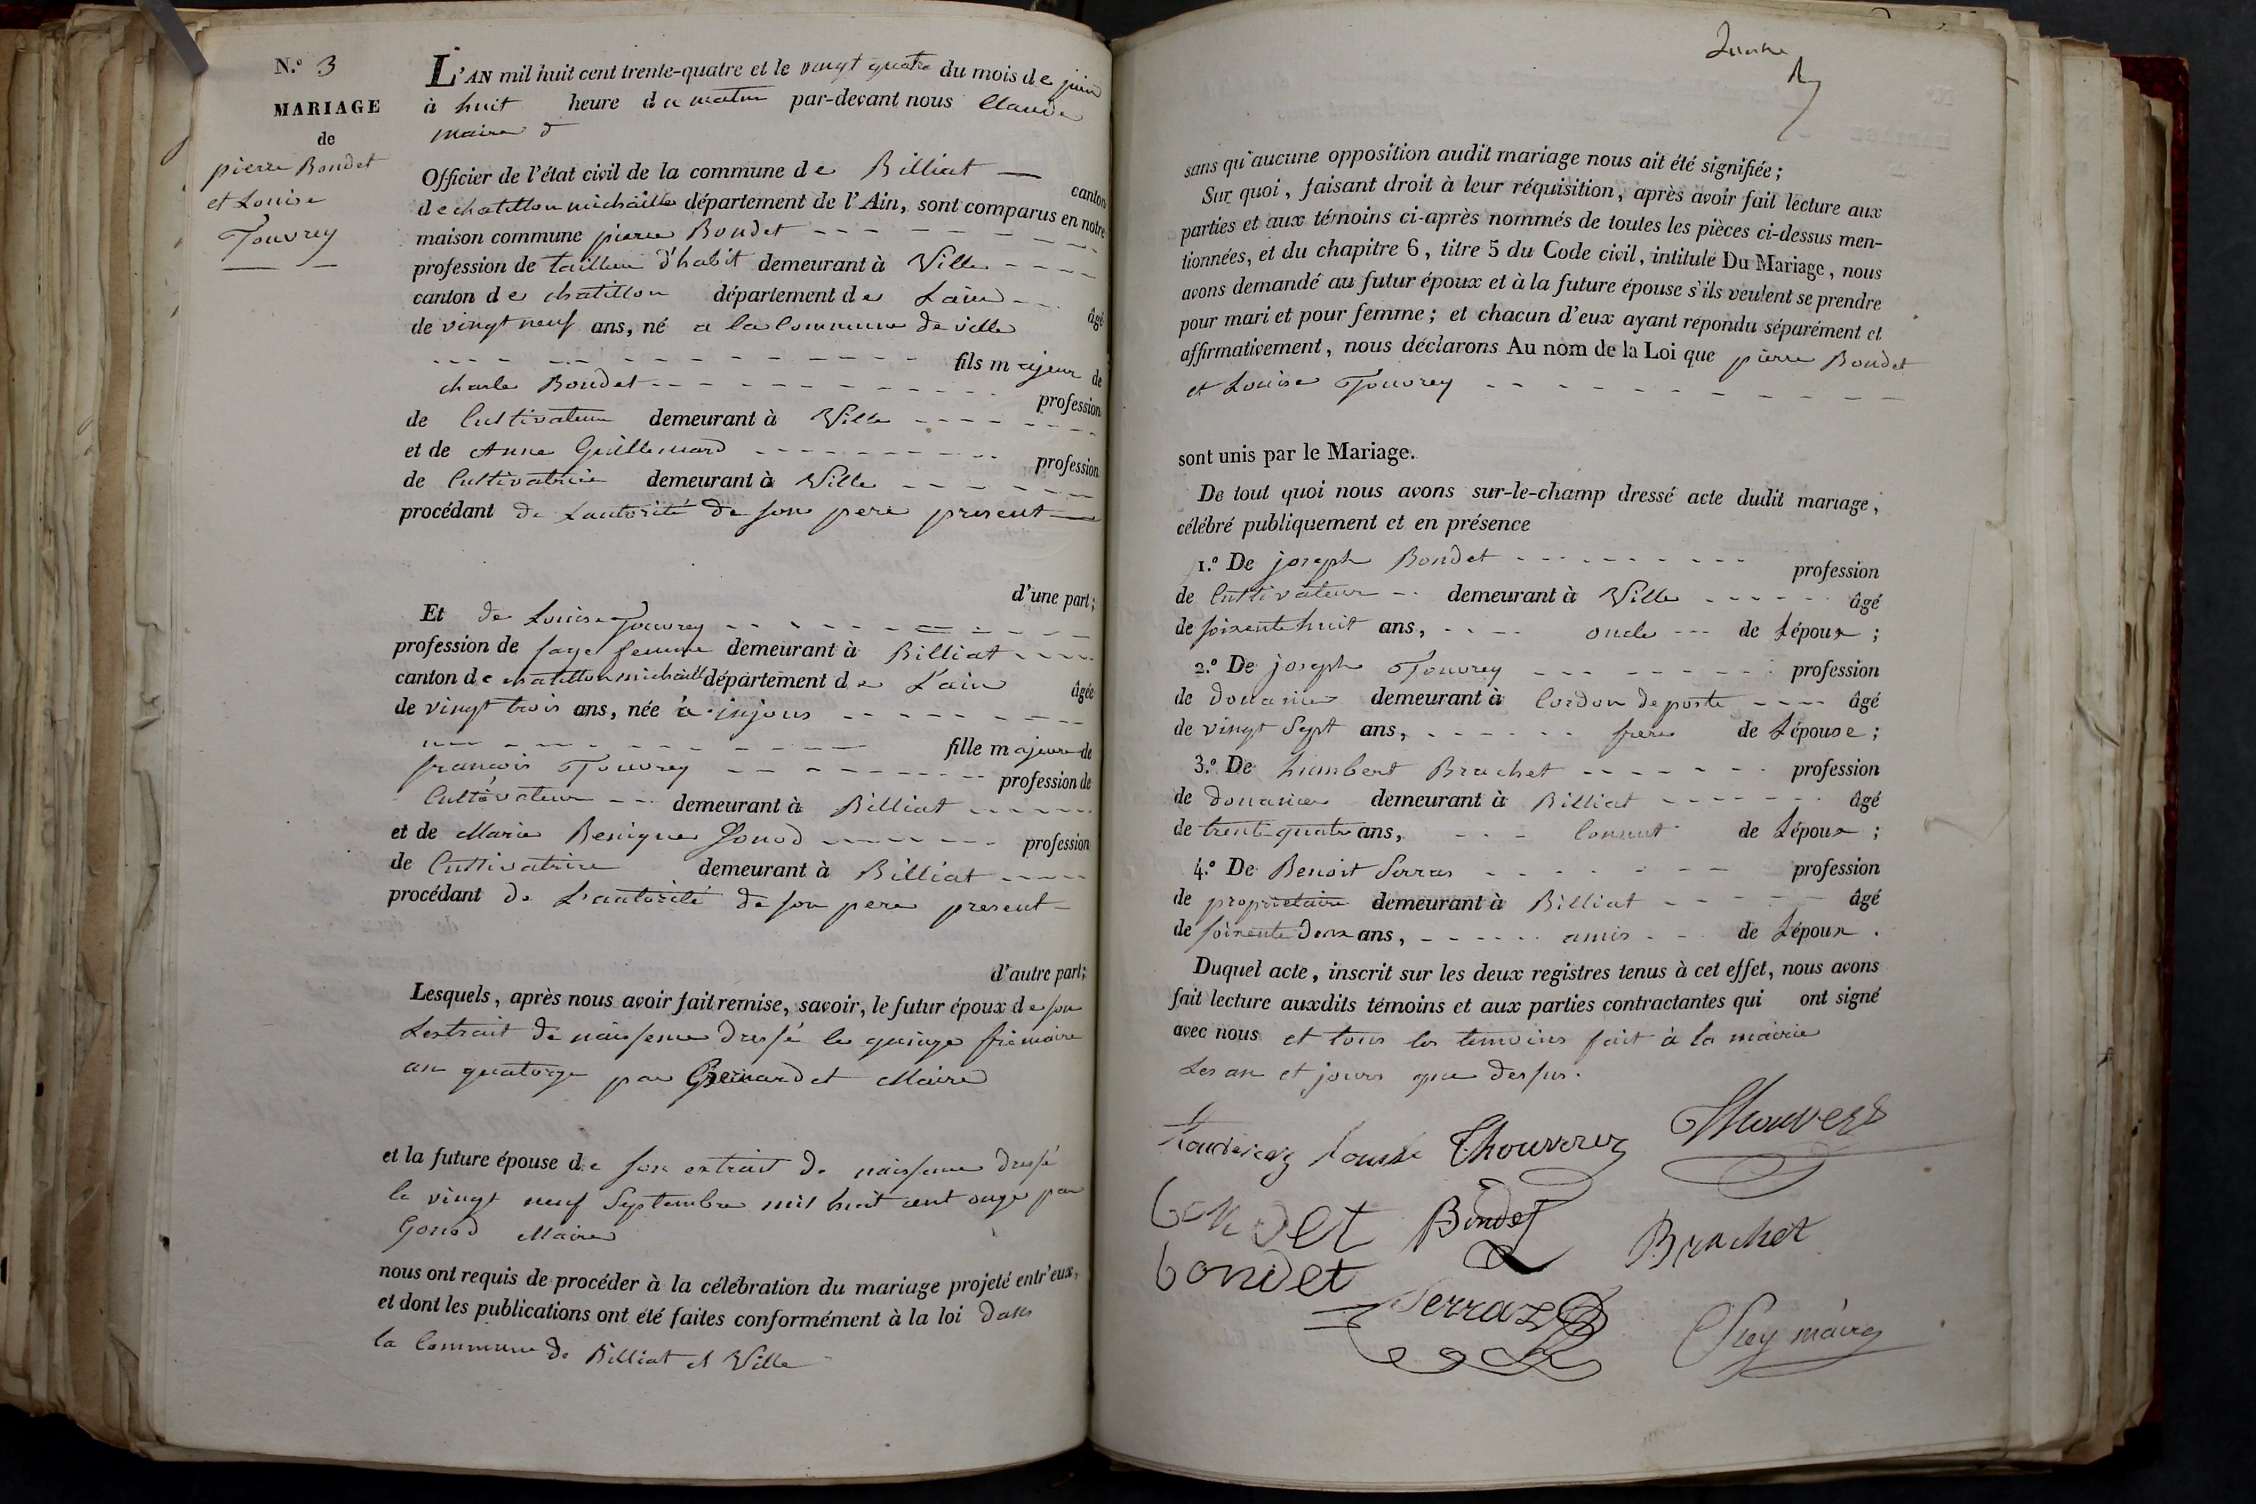 N.º 3
MARIAGE
de
pierre Bondet
et Louise
Touvrey
L'AN mil huit cent trente-quatre et le vingt quatre du mois de juin
à huit heure du matin par-devant nous Claude
maire
Officier de l'état civil de la commune de Billiat canton
de chatillon michaille département de l'Ain, sont comparus en notre
maison commune pierre Bondet
profession de tailleur d'habit demeurant à Ville
canton de chatillon département de Lain âgé
de vingt neuf ans, né a la Commune de ville
fils majeur de
charle Bondet profession
de Cultivateur demeurant à Ville
et de Anne Guillemard profession
de Cultivatrice demeurant à Ville
procédant de Lautorité de son pere present
d'une part;
Et de Louise Touvrey
profession de sage femme demeurant à Billiat
canton de chatillon michaille département de L'ain âgée
de vingt trois ans, née à injoux
fille majeure de
francois Touvrey profession de
Cultivateur demeurant à Billiat
et de Marie Benigne Gonod profession
de Cultivatrice demeurant à Billiat
procédant de L'autorité de son pere present
d'autre part;
Lesquels, après nous avoir fait remise, savoir, le futur époux de son
Lextrait de naissence dressé le quinze frimaire
an quatorze par Maire
et la future épouse de son extrait de naissence dressé
le vingt neuf Septembre mil huit cent onze par
Gonod Maire
nous ont requis de procéder à la célébration du mariage projeté entr'eux,
et dont les publications ont été faites conformément à la loi dans
la Commune de Billiat et Ville
sans qu'aucune opposition audit mariage nous ait été signifiée;
Sur quoi, faisant droit à leur réquisition, après avoir fait lecture aux
parties et aux témoins ci-après nommés de toutes les pièces ci-dessus men-
tionnées, et du chapitre 6, titre 5 du Code civil, intitulé Du Mariage, nous
avons demandé au futur époux et à la future épouse s'ils veulent se prendre
pour mari et pour femme; et chacun d'eux ayant répondu séparément et
affirmativement, nous déclarons Au nom de la Loi que pierre Bondet
et Louise Touvrey
sont unis par le Mariage.
De tout quoi nous avons sur-le-champ dressé acte dudit mariage,
célébré publiquement et en présence
1.º De joseph Bondet profession
de Cultivateur demeurant à Ville âgé
de soixente huit ans, oncle de Lépoux;
2.º De joseph Touvrey profession
de douanier demeurant à Cordon de poste âgé
de vingt Sept ans, frere de Lépouse;
3.º De humbert Brachet profession
de douanier demeurant à Billiat âgé
de trente quatre ans, de Lépoux;
4.º De Benoit Serras profession
de proprietaire demeurant à Billiat âgé
de soixente deux ans, amis de Lépoux.
Duquel acte, inscrit sur les deux registres tenus à cet effet, nous avons
fait lecture auxdits témoins et aux parties contractantes qui ont signé
avec nous et tous les temoins fait à la mairie
Les an et jours que dessus.
Thouvrez
bondet Bondet Brachet
bondet
Serraz maire